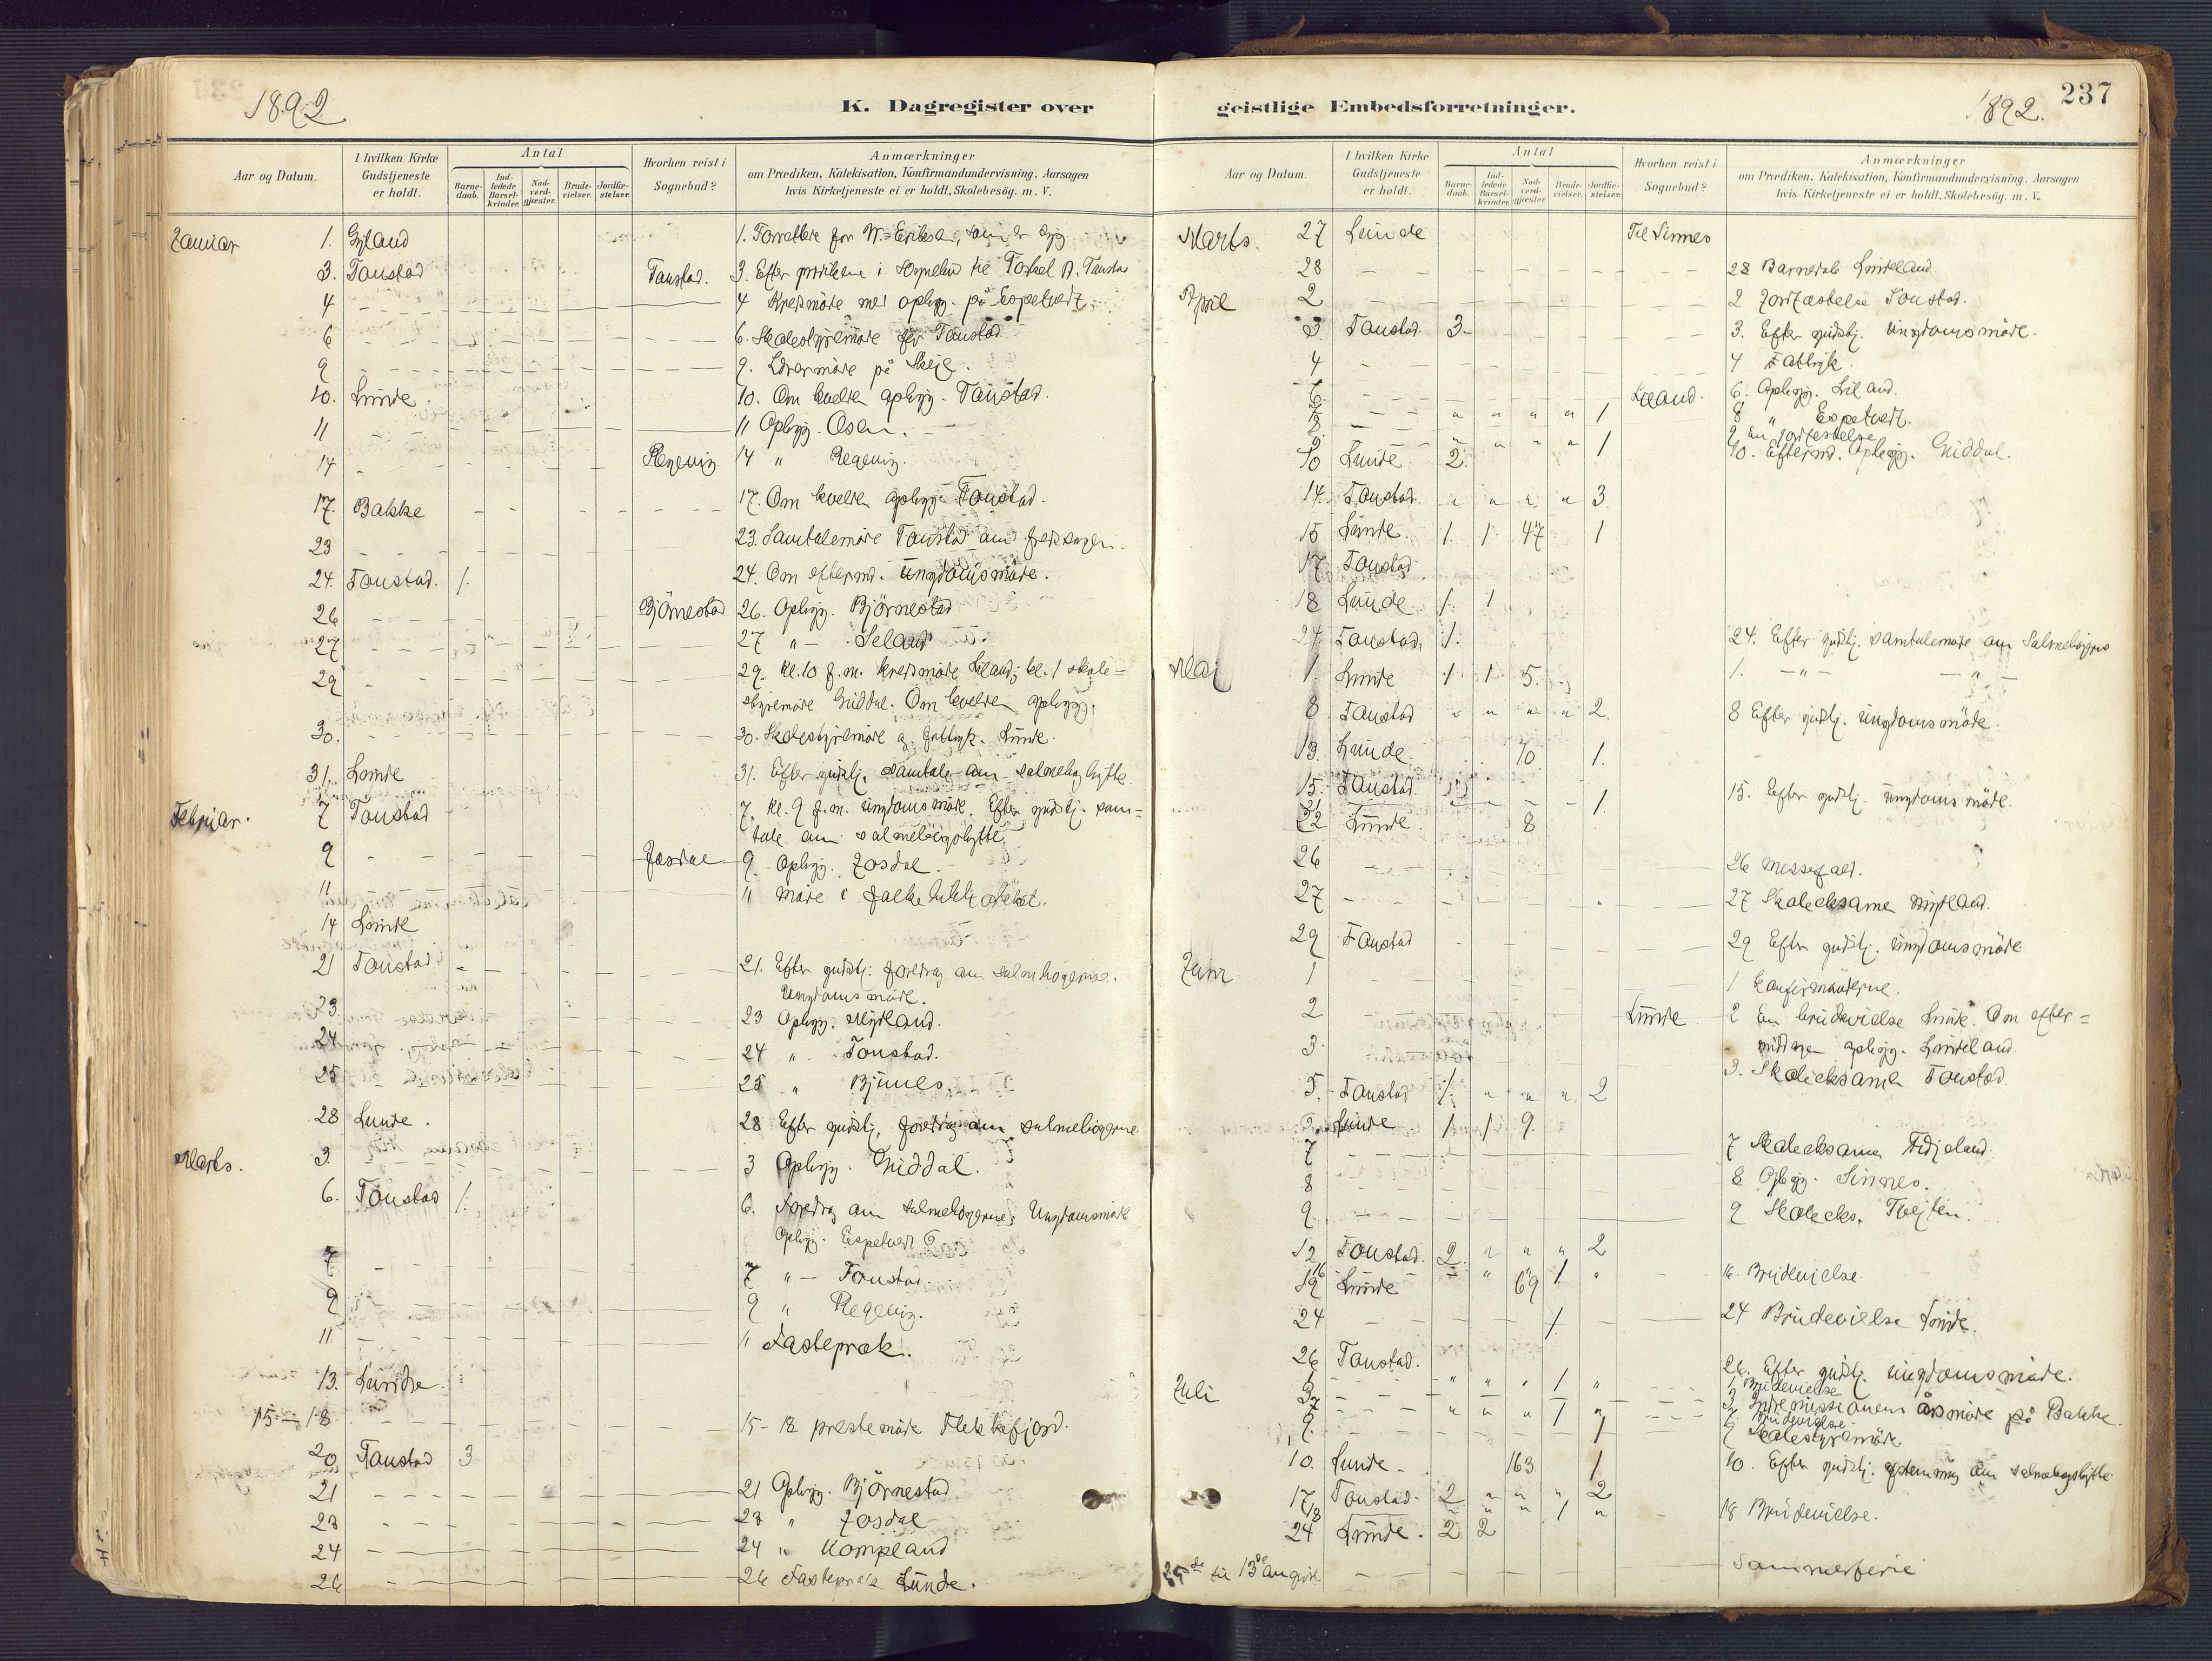 1892
K. Dagregister over
Aar og Datum.
I hvilken Kirke
Gudstjeneste
er holdt.
Antal
Barne-
daab.
Ind-
ledede
Barsel-
kvinder.
Nad-
verd-
gjæster.
Brude-
vielser.
Jordfæ-
stelser.
Hvorhen reist i
Sognebud?
Anmærkninger
om Prædiken, Katekisation, Konfirmandundervisning, Aarsagen
hvis Kirketjeneste ei er holdt, Skolebesög. m. V.
Januar 1. Gyland 1. Forrettere for syg
3. Tonstad Tonstad. 3. Efter i til A. Tonstad
4 4 Kredsmöte med opbygg. på Espetvedt.
6 6. Skolestyremöte for Tonstad
9 9. på Skeje.
10. Lunde. 10. Om kvelden opbygg. Tonstad.
11 11 Opbygg. Osen.
14 Regevig 14 " Regevig.
17. Bakke 17. Om kvelden opbygg. Tonstad.
23 23. Samtalemöte Tonstad om fredssagen.
24. Tonstad. 1. 24. Om efterm. ungdomsmöte.
26 Björnestad 26. Opbygg. Björnestad
27 27 " Seland.
29 29. Kl. 10 f.m. kredsmöte Lileand; kl. 1 skole-
styremöte Guddal. Om kvelden opbygg.
30. 30. Skolestyremöte Lunde.
31. Lunde 31. Efter gudstj. samtale om salmebogbytte.
Februar. 7 Tonstad 7. Kl. 9 f.m. ungdomsmöte. Efter gudstj. sam-
tale om salmebogsbytte.
9 Josdal 9. Opbygg. Josdal.
11 11 möte i
14 Lunde
21 Tonstad 21. Efter gudstj. foredrag om salmbögerne.
Ungdomsmöte.
23. 23 Opbygg. Mygland.
24 24 " Tonstad.
25 25 " Bjunes.
28 Lunde. 28 Efter gudstj. foredrag om salmebögerne
Marts. 3. 3 Opbygg. Guddal.
6. Tonstad 1. 6. Foredrag om salmebögerne. Ungdomsmöte
Opbygg. Espetvedt
7 7 " Tonstad.
9 9 " Regevig.
11 11 Fastepræk.
13. Lunde.
15-18 15-18 prestemöte Flekkefjord.
20 Tonstad 3
21 21 Opbygg. Björnestad
23 23 " Josdal
24 24 " Kompland
26 26 Fasteprek Lunde.
237
1892.
geistlige Embedsforretninger.
Aar og Datum.
I hvilken Kirke
Gudstjeneste
er holdt.
Antal
Barne-
daab.
Ind-
ledede
Barsel-
kvinder.
Nad-
verd-
gjæster.
Brude-
vielser.
Jordfæ-
stelser.
Hvorhen reist i
Sognebud?
Anmærkninger
om Prædiken, Katekisation, Konfirmandundervisning, Aarsagen
hvis Kirketjeneste ei er holdt, Skolebesög. m. V.
Marts. 27 Lunde Til Sinnes
28 28 Barnedåb Lindeland.
April 2 2 Jordfæstelse Tonstad.
3 Tonstad. 3 3. Efter gudstj. ungdomsmöte.
4 4 Fattigk.
6. Lileand. 6. Opbygg. Lileand.
8 " " " " 1 8 " Espetvedt.
9 " " " " 1 9 En jordfestelse
10 Lunde 2. 10. Efterm. Opbygg. Guddal.
14. Tonstad " " " " 3
15 Lunde 1. 1 47 1
17 Tonstad
18 Lunde 1. 1
24 Tonstad. 1. 24. Efter gudstj. samtalemöte om salmebogens
Maj 1. Lunde 1 1 5. 1. " "
8 Tonstad " " " " 2. 8 Efter gudstj. ungdomsmöte.
13. Lunde 10. 1.
15. Tonstad. 15. Efter gudstj. ungdomsmöte.
21 1.
22 Lunde. 8
26 26 Messefald.
27 27 Skoleeksamen Mygland.
29 Tonstad 29 Efter gudstj. ungdomsmöte
Juni 1 1 Konfirmanterne.
2 Lunde 2 En brudevielse Lunde. Om efter-
middagen opbygg. Lindeland.
3. 3. Skoleeksamen Tonstad.
5. Tonstad 1. " " " 2
6. Lunde 1 1 9.
7 7 Skoleeksamen Fidjeland.
8 8 Opbygg. Sinnes.
9 9 Skoleeks. Tvejten.
12 Tonstad. 2. " " " 2
16 " " 1 " 16. Brudevielse.
19 Lunde 69
24 1. 24 Brudevielse Lunde.
26 Tonstad. 26. Efter gudstj. ungdomsmöte.
Juli 1 " " " 1 " 1 Brudevielse
3 3. Indremissionens årsmöte på Bakke.
7 " " " 1 " 7. Brudevielse
9. 1 9 Skolestyremöte.
10. Lunde 163 1. 10. Efter gudstj. afstemning om salmebogsbytte
17 Tonstad. 2 " " " 2
18 " " " 1 " 18 Brudevielse.
24 Lunde. 2 2
25de til 13de august Sommerferie